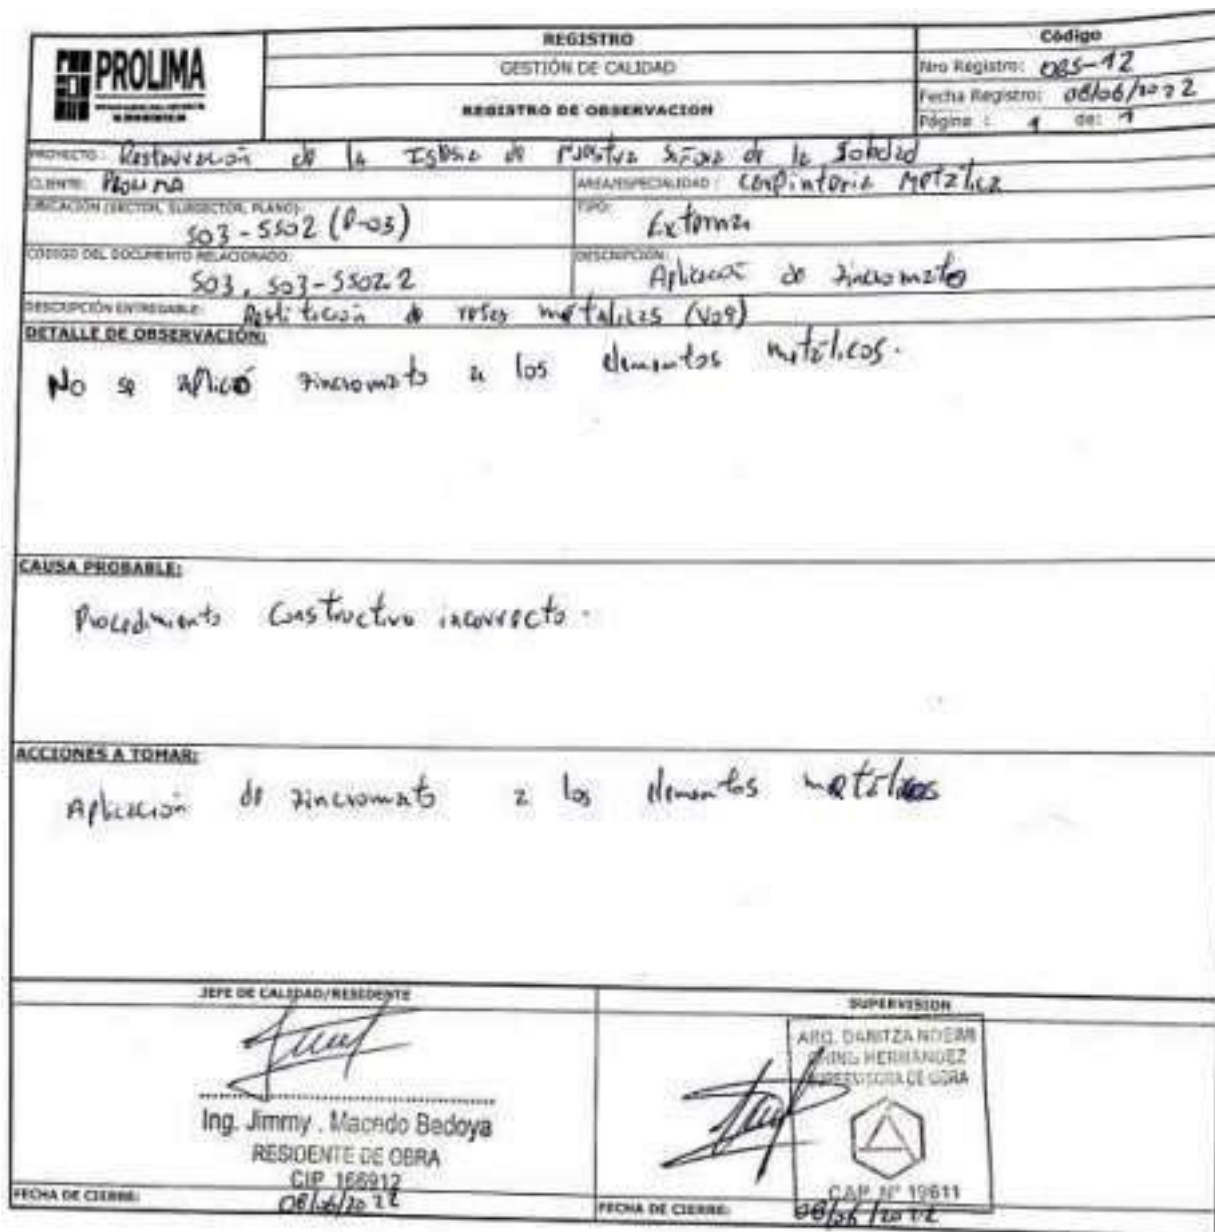 PROLIMA
REGISTRO
GESTIÓN DE CALIDAD
REGISTRO DE OBSERVACION
Código
Nro Registro: OBS-12
Fecha Registro: 08/06/2022
Página : 1 de: 1
PROYECTO: Restauración de la Iglesia de Nuestra Señora de la Soledad
CLIENTE: PROLIMA
AREA/ESPECIALIDAD: Carpintería Metálica
UBICACIÓN (SECTOR, SUBSECTOR, PLANO): S03-SS02 (P-03)
TIPO: Externa
CODIGO DEL DOCUMENTO RELACIONADO: S03, S03-SS02.2
DESCRIPCIÓN: Aplicación de zincromato
DESCRIPCIÓN ENTREGABLE: Restitución de rejas metálicas (V09)
DETALLE DE OBSERVACIÓN:
No se aplicó zincromato a los elementos metálicos.
CAUSA PROBABLE:
Procedimiento Constructivo incorrecto.
ACCIONES A TOMAR:
Aplicación de zincromato a los elementos metálicos
JEFE DE CALIDAD/RESIDENTE
Ing. Jimmy . Macedo Bedoya
RESIDENTE DE OBRA
CIP 166912
FECHA DE CIERRE: 08/06/2022
SUPERVISION
ARQ. DANITZA NOEMI
CHING HERNANDEZ
SUPERVISORA DE OBRA
CAP N° 19611
FECHA DE CIERRE: 08/06/2022